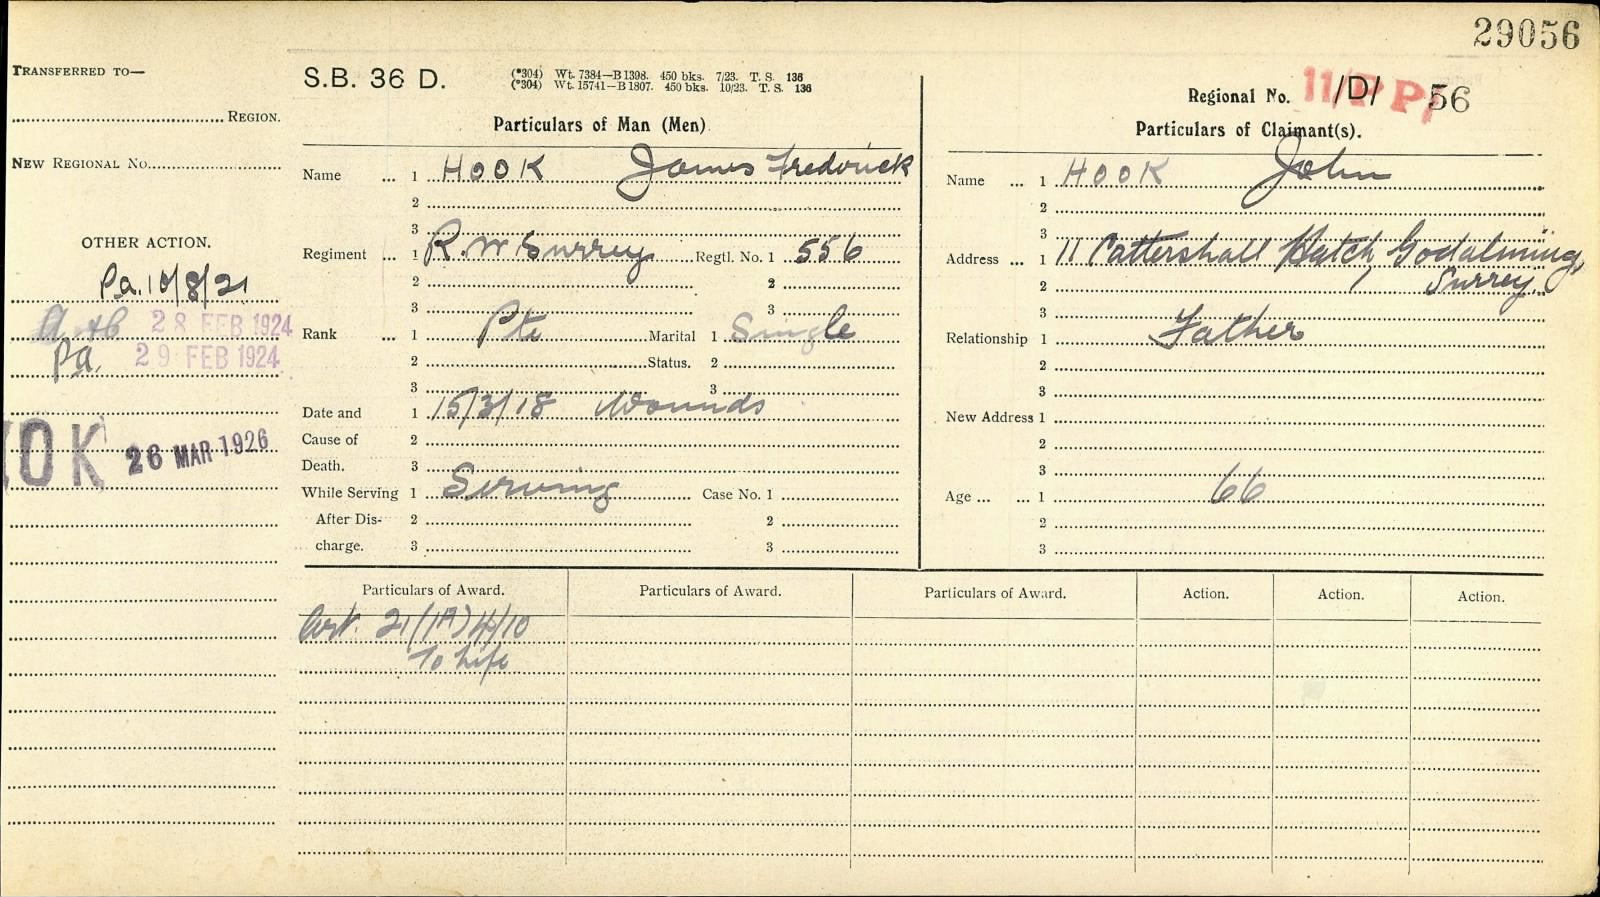 29056
TRANSFERRED TO—
REGION.
NEW REGIONAL No.
OTHER ACTION.
Pa. 10/8/21
28 FEB 1924
Pa. 29 FEB 1924
OK 26 MAR 1926
S.B. 36 D.
(*304) Wt. 7384—B1398. 450 bks. 7/23. T. S. 136
(*304) Wt. 15741—B1807. 450 bks. 10/23. T. S. 136
Particulars of Man (Men)
Name ... 1 HOOK James Frederick
2
3
Regiment ... 1 R. W Surrey Regtl. No. 1 556
2 2
3 3
Rank ... 1 Pte Marital 1 Single
2 Status. 2
3 3
Date and 1 15/3/18 Wounds
Cause of 2
Death. 3
While Serving 1 Serving Case No. 1
After Dis- 2 2
charge. 3 3
Regional No. 11/PP/ /D/ 56
Particulars of Claimant(s).
Name ... 1 HOOK John
2
3
Address ... 1 11 Cattershall Hatch, Godalming,
2 Surrey
3
Relationship 1 Father
2
3
New Address 1
2
3
Age ... ... 1 66
2
3
Particulars of Award. Particulars of Award. Particulars of Award. Action. Action. Action.
Art. 21 (1A) 4/10
To Life